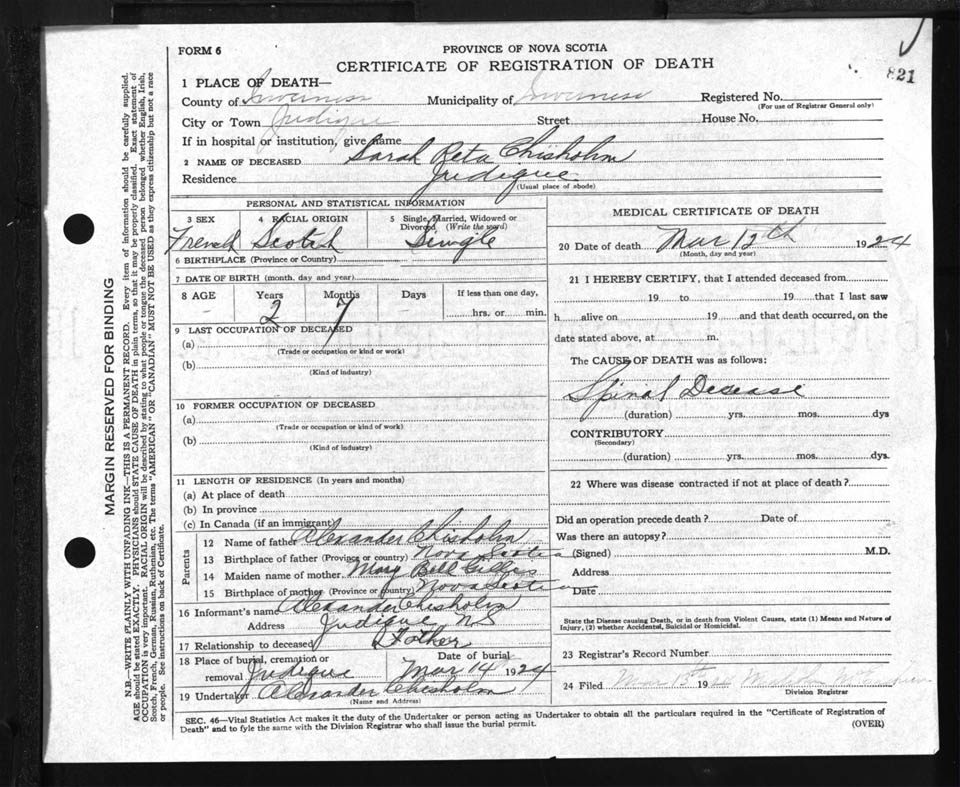 821
FORM 6
PROVINCE OF NOVA SCOTIA
CERTIFICATE OF REGISTRATION OF DEATH
1 PLACE OF DEATH—
County of Inverness Municipality of Inverness Registered No.
(For use of Registrar General only)
City or Town Judique Street House No.
If in hospital or institution, give name
2 NAME OF DECEASED Sarah Reta Chisholm
Residence Judique
(Usual place of abode)
PERSONAL AND STATISTICAL INFORMATION
3 SEX 4 RACIAL ORIGIN 5 Single, Married, Widowed or Divorced (Write the word)
French Scotish Single
6 BIRTHPLACE (Province or Country)
7 DATE OF BIRTH (month, day and year)
8 AGE Years Months Days If less than one day,
- 2 7 - hrs. or min.
9 LAST OCCUPATION OF DECEASED
(a)
(Trade or occupation or kind or work)
(b)
(Kind of industry)
10 FORMER OCCUPATION OF DECEASED
(a)
(Trade or occupation or kind of work)
(b)
(Kind of industry)
11 LENGTH OF RESIDENCE (In years and months)
(a) At place of death
(b) In province
(c) In Canada (if an immigrant)
Parents
12 Name of father Alexander Chisholm
13 Birthplace of father (Province or country) Nova Scotia
14 Maiden name of mother Mary Bell Gillis
15 Birthplace of mother (Province or country) Nova Scotia
16 Informant's name Alexander Chisholm
Address Judique NS
17 Relationship to deceased Father
18 Place of burial, cremation or Date of burial
removal Judique Mar 14 1924
19 Undertaker Alexander Chisholm
(Name and Address)
MEDICAL CERTIFICATE OF DEATH
20 Date of death Mar 12th 1924
(Month, day and year)
21 I HEREBY CERTIFY, that I attended deceased from
19 to 19 that I last saw
h alive on 19 and that death occurred, on the
date stated above, at m.
The CAUSE OF DEATH was as follows:
Spinal Decease
(duration) yrs. mos. dys
CONTRIBUTORY
(Secondary)
(duration) yrs. mos. dys.
22 Where was disease contracted if not at place of death?
Did an operation precede death? Date of
Was there an autopsy?
(Signed) M.D.
Address
Date
State the Disease causing Death, or in death from Violent Causes, state (1) Means and Nature of
Injury, (2) whether Accidental, Suicidal or Homicidal.
23 Registrar's Record Number
24 Filed Mar 13th 1924
Division Registrar
SEC. 46—Vital Statistics Act makes it the duty of the Undertaker or person acting as Undertaker to obtain all the particulars required in the "Certificate of Registration of
Death" and to fyle the same with the Division Registrar who shall issue the burial permit. (OVER)
MARGIN RESERVED FOR BINDING
N.B.—WRITE PLAINLY WITH UNFADING INK—THIS IS A PERMANENT RECORD. Every item of information should be carefully supplied.
AGE should be stated EXACTLY. PHYSICIANS should STATE CAUSE OF DEATH in plain terms, so that it may be properly classified. Exact statement of
OCCUPATION is very important. RACIAL ORIGIN will be described by stating to what people or tongue the deceased person belonged whether English, Irish,
Scotch, French, German, Russian, Ruthenian, etc. The terms "AMERICAN" OR "CANADIAN" MUST NOT BE USED as they express citizenship but not a race
or people. See instructions on back of Certificate.